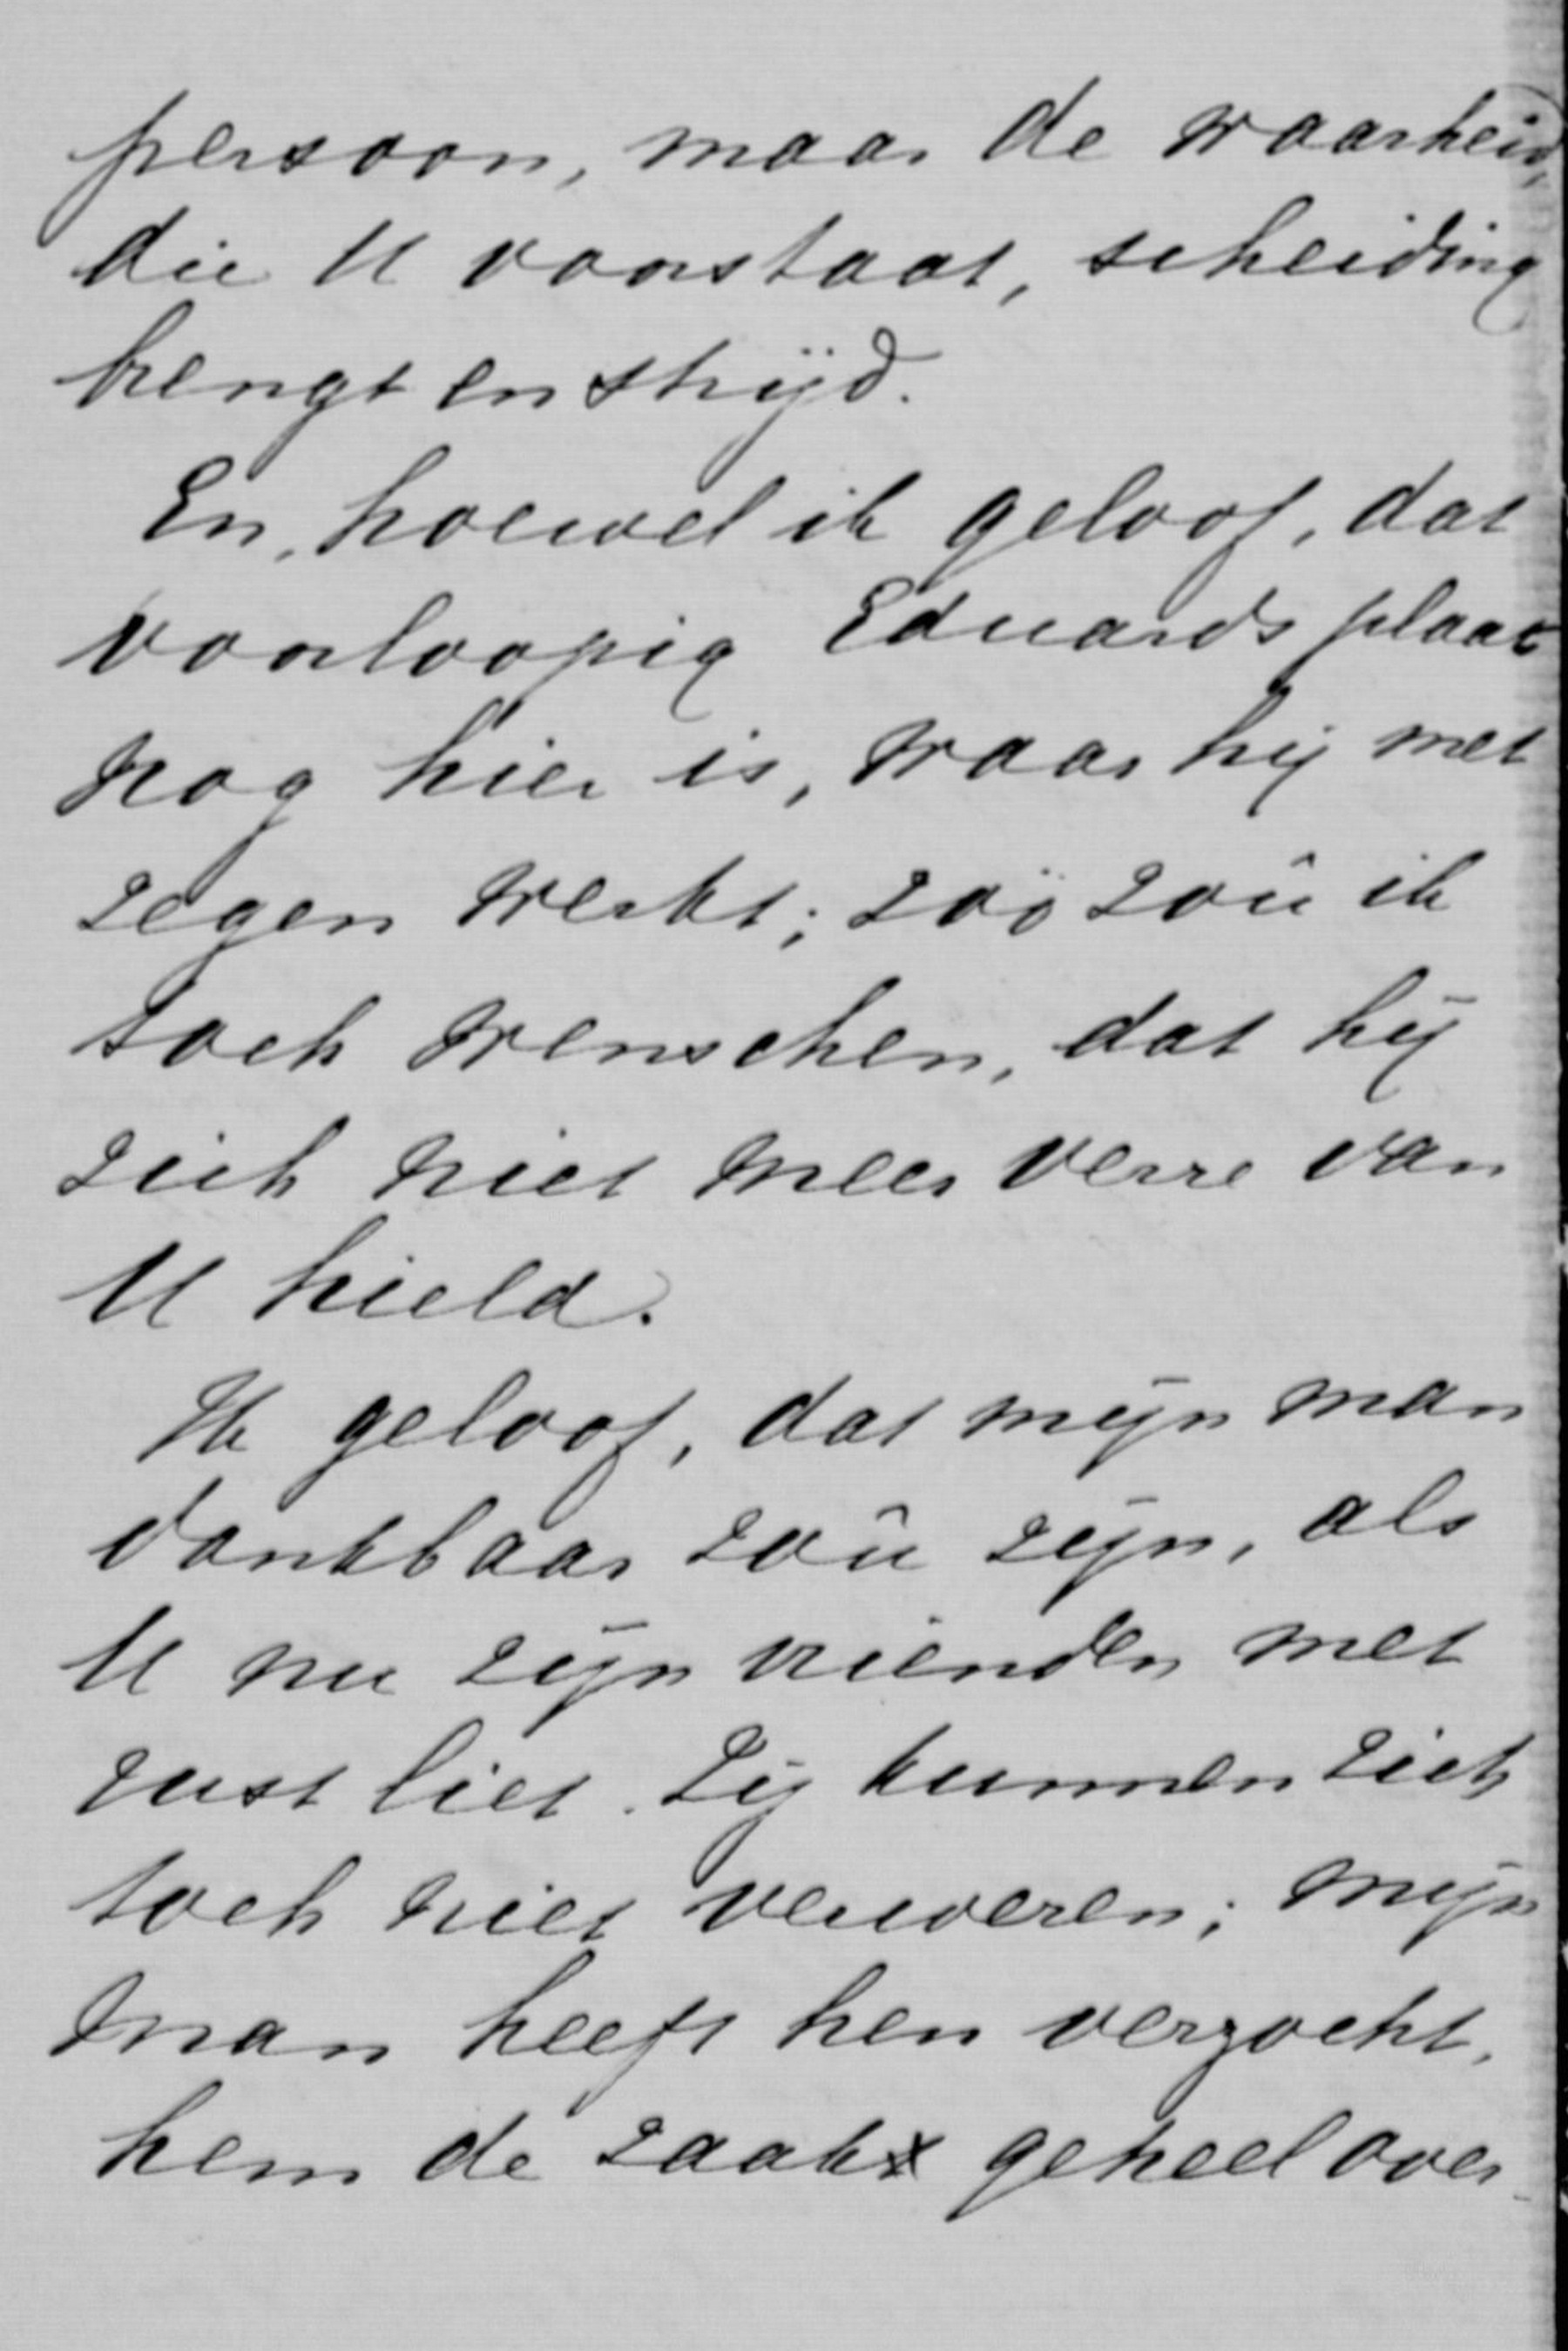 persoon, maar de waarheid,
die U voorstaat, scheiding
brengt en strijd.
En, hoewel ik geloof, dat
voorloopig Eduards plaats
nog hier is, waar hij met
zegen werkt; zoo zoû ik
toch wenschen, dat hij
zich niet meer verre van
U hield.
Ik geloof, dat mijn man
dankbaar zoû zijn, als
U nu zijn vrienden met
rust liet. Zij kunnen zich
toch niet verweren; mijn
man heeft hen verzocht,
hem de zaak geheel over